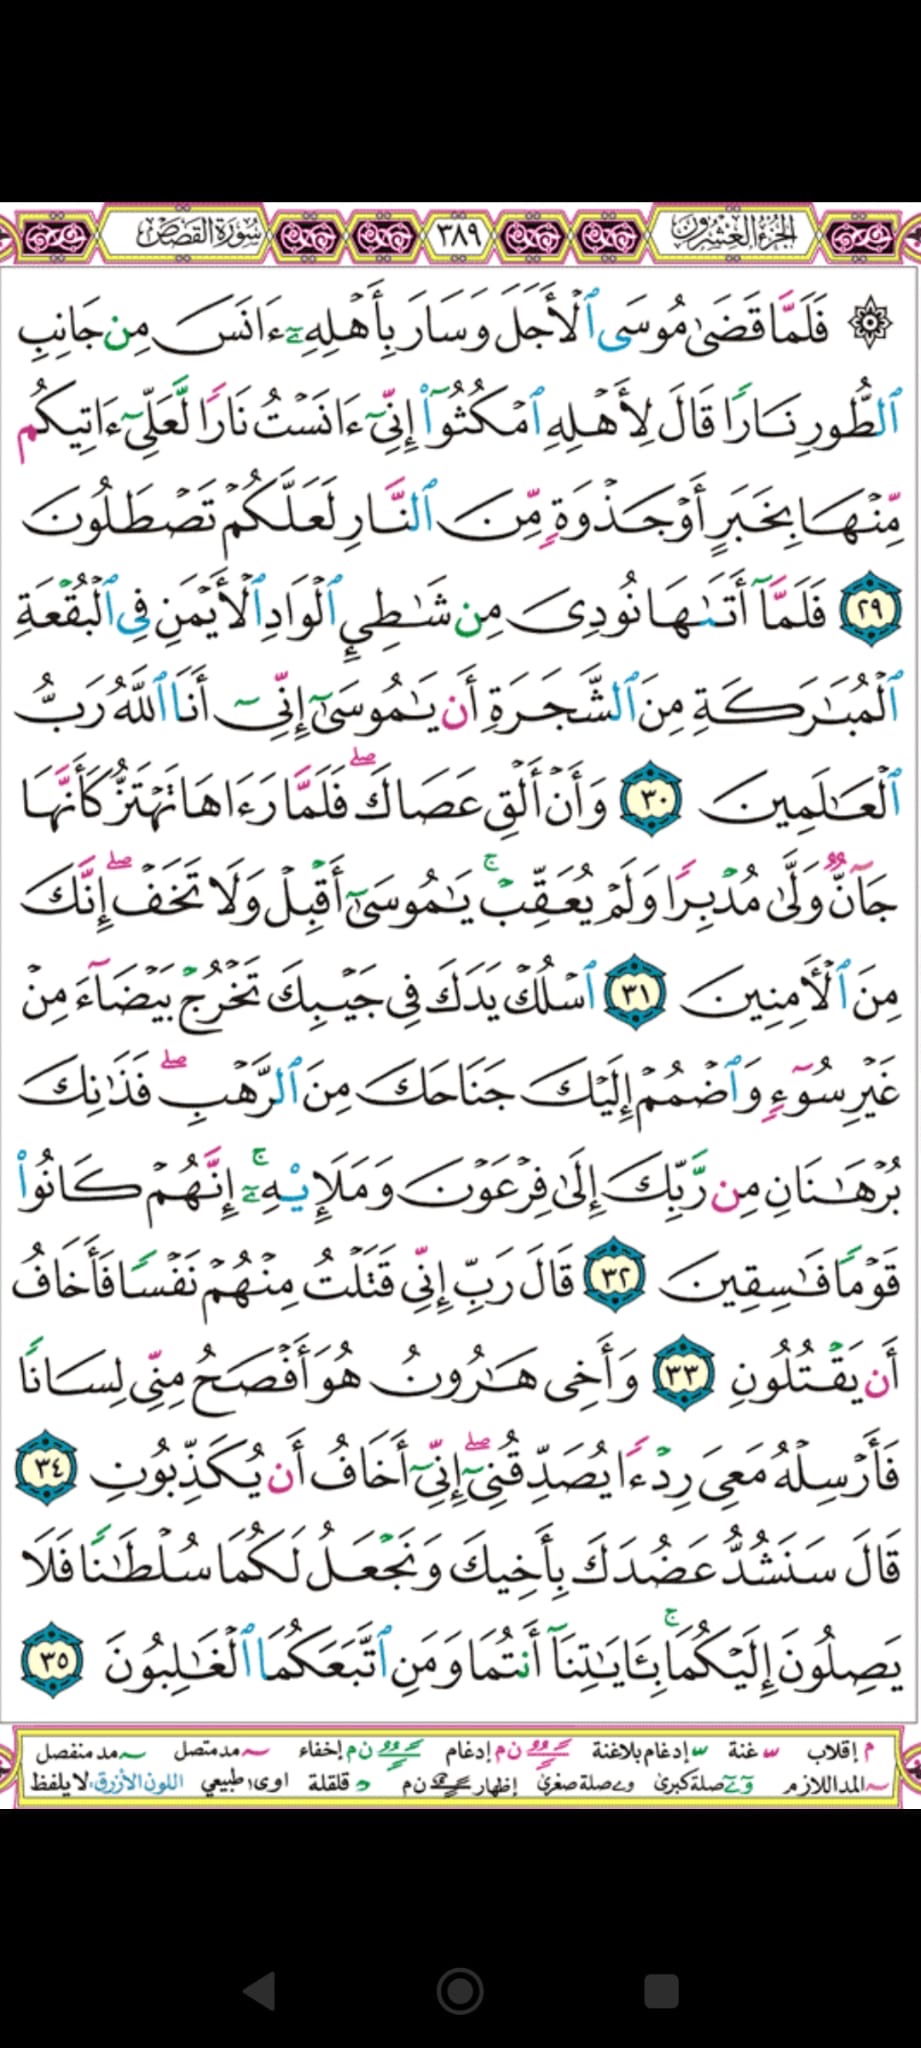 الجزء العشرون ٣٨٩ سورة القصص
۞ فَلَمَّا قَضَىٰ مُوسَى ٱلْأَجَلَ وَسَارَ بِأَهْلِهِۦٓ ءَانَسَ مِن جَانِبِ
ٱلطُّورِ نَارًا قَالَ لِأَهْلِهِ ٱمْكُثُوٓا۟ إِنِّىٓ ءَانَسْتُ نَارًا لَّعَلِّىٓ ءَاتِيكُم
مِّنْهَا بِخَبَرٍ أَوْ جَذْوَةٍ مِّنَ ٱلنَّارِ لَعَلَّكُمْ تَصْطَلُونَ
٢٩ فَلَمَّآ أَتَىٰهَا نُودِىَ مِن شَـٰطِئِ ٱلْوَادِ ٱلْأَيْمَنِ فِى ٱلْبُقْعَةِ
ٱلْمُبَـٰرَكَةِ مِنَ ٱلشَّجَرَةِ أَن يَـٰمُوسَىٰٓ إِنِّىٓ أَنَا ٱللَّهُ رَبُّ
ٱلْعَـٰلَمِينَ ٣٠ وَأَنْ أَلْقِ عَصَاكَ ۖ فَلَمَّا رَءَاهَا تَهْتَزُّ كَأَنَّهَا
جَآنٌّ وَلَّىٰ مُدْبِرًا وَلَمْ يُعَقِّبْ ۚ يَـٰمُوسَىٰٓ أَقْبِلْ وَلَا تَخَفْ ۖ إِنَّكَ
مِنَ ٱلْـَٔامِنِينَ ٣١ ٱسْلُكْ يَدَكَ فِى جَيْبِكَ تَخْرُجْ بَيْضَآءَ مِنْ
غَيْرِ سُوٓءٍ وَٱضْمُمْ إِلَيْكَ جَنَاحَكَ مِنَ ٱلرَّهْبِ ۖ فَذَٰنِكَ
بُرْهَـٰنَانِ مِن رَّبِّكَ إِلَىٰ فِرْعَوْنَ وَمَلَإِي۟هِۦٓ ۚ إِنَّهُمْ كَانُوا۟
قَوْمًا فَـٰسِقِينَ ٣٢ قَالَ رَبِّ إِنِّى قَتَلْتُ مِنْهُمْ نَفْسًا فَأَخَافُ
أَن يَقْتُلُونِ ٣٣ وَأَخِى هَـٰرُونُ هُوَ أَفْصَحُ مِنِّى لِسَانًا
فَأَرْسِلْهُ مَعِىَ رِدْءًا يُصَدِّقُنِىٓ ۖ إِنِّىٓ أَخَافُ أَن يُكَذِّبُونِ ٣٤
قَالَ سَنَشُدُّ عَضُدَكَ بِأَخِيكَ وَنَجْعَلُ لَكُمَا سُلْطَـٰنًا فَلَا
يَصِلُونَ إِلَيْكُمَا ۚ بِـَٔايَـٰتِنَآ أَنتُمَا وَمَنِ ٱتَّبَعَكُمَا ٱلْغَـٰلِبُونَ ٣٥
م إقلاب غنة إدغام بلاغنة ن م إدغام ن م إخفاء مد متصل مد منفصل
المد اللازم صلة كبرى صلة صغرى إظهار ن م قلقلة اوى، طبيعي اللون الأزرق: لا يلفظ